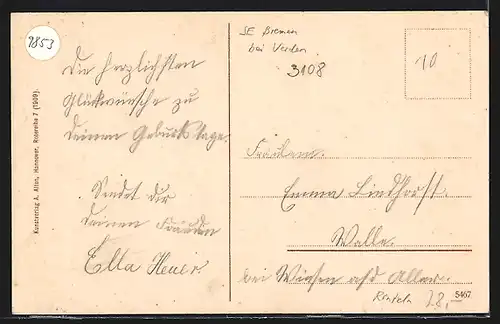 9853
Die herzlichsten
Glückwünsche zu
Deinen Geburtstage.
Sendet dir
deinen
Ella Heuer
Kunstverlag A. Alten, Hannover, 7 (1909).
SE Bremen
bei Verden
3108
10
Fräulein.
Emma Lindhorst.
Walle.
bei Aller.
5467